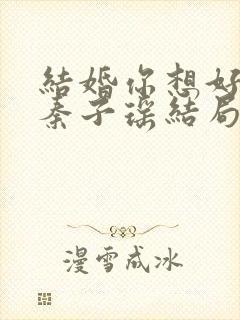 結婚你想好
秦子瑤結局
漫雪成冰